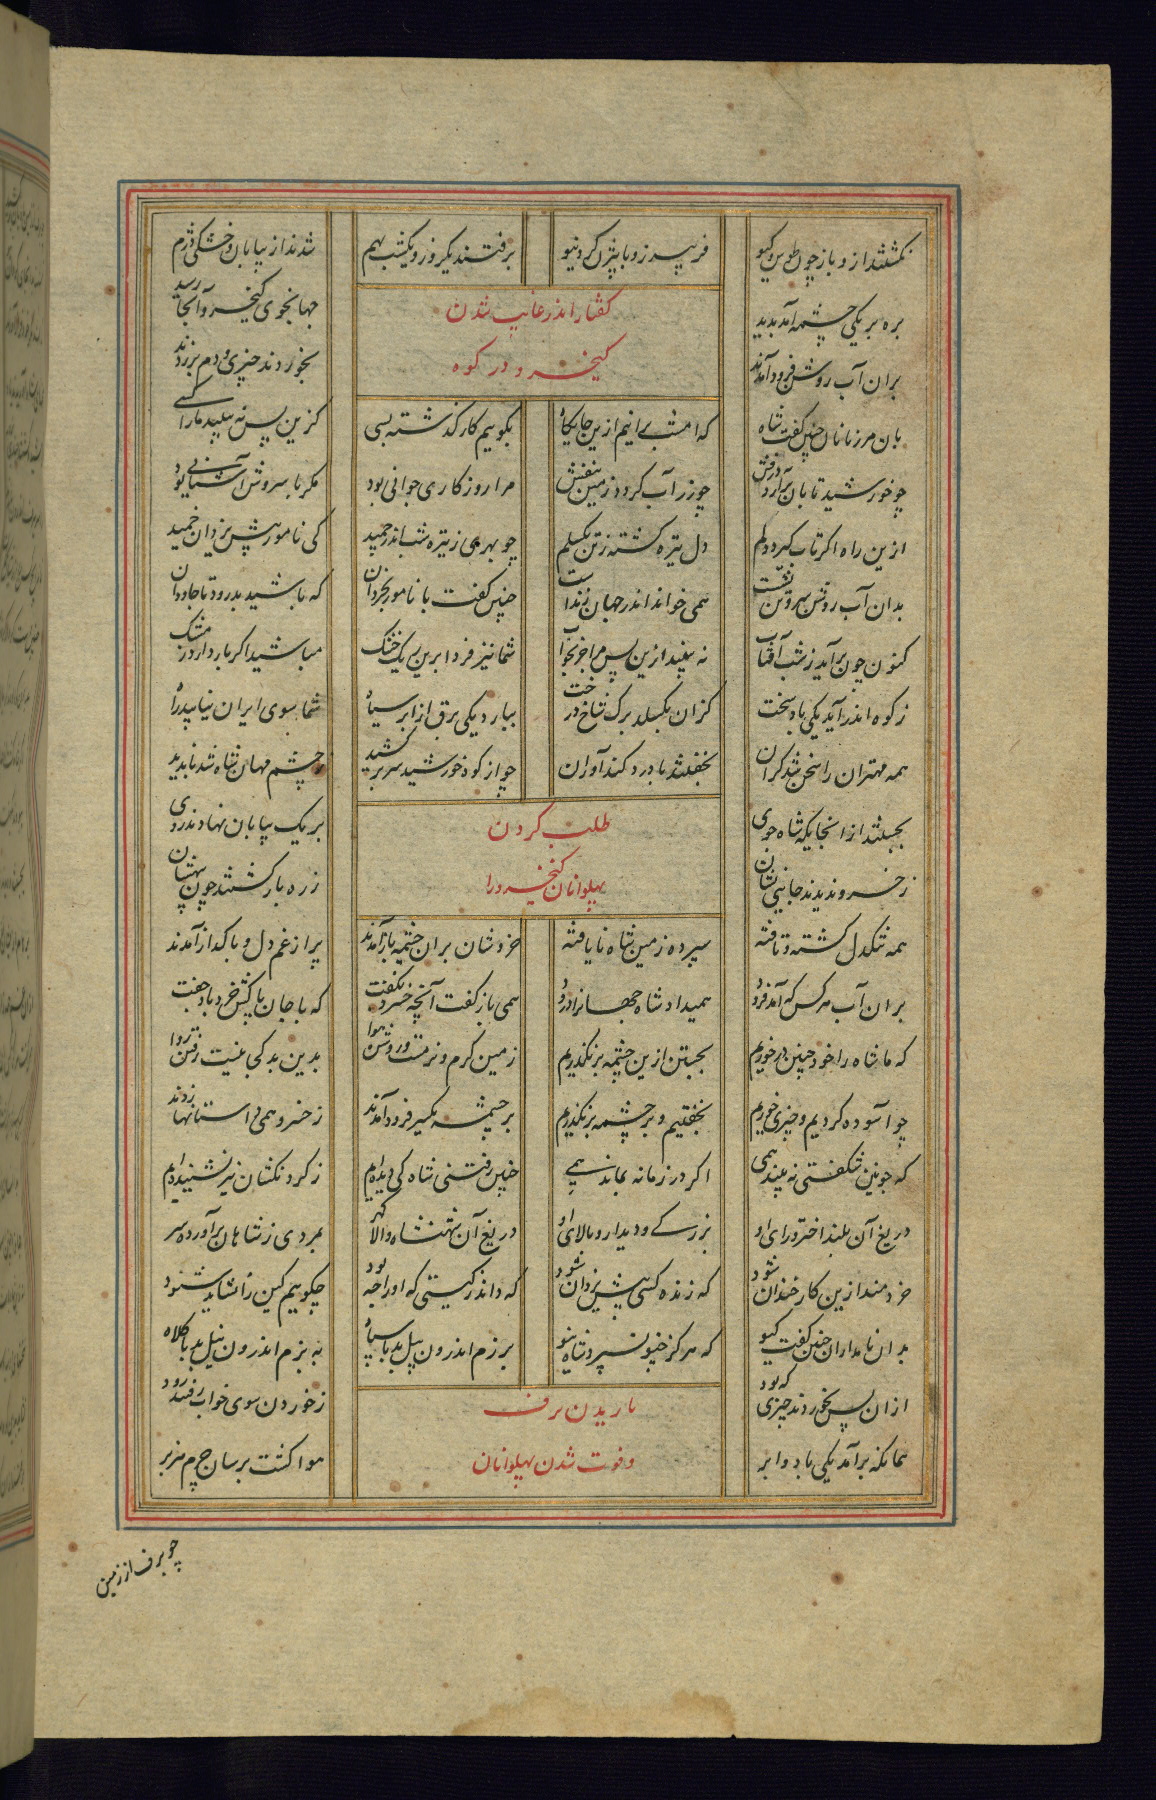 نگشتند ازو باز چون طوس و گیو
فریبرز و با بیژن گرد نیو
برفتند یکروز و یکشب بهم
شدند از بیابان و خشکی دژم
بره بر یکی چشمه آمد بدید
جهانجوی کیخسرو آنجا رسید
گفتار اندر غایب شدن
کیخسرو در کوه
بران آب روشن فرود آمدند
بخوردند چیزی و دم برزدند
بان مرزبانان چنین گفت شاه
که امشب برانیم ازین جایگاه
بگوییم کار گذشته بسی
کزین پس نه بیند مارا کسی
چو خورشید تابان برآرد درفش
چو زر آب گردد زمین بنفش
مرا روزگار جوانی بود
مگر با سروش آشنایی بود
ازین راه اگر تاب گیرد دلم
دل تیره گشته ز تن بگسلم
چو بهری ز تیره شب اندر چمید
کی نامور پیش یزدان خمید
بدان آب روشن سر و تن بشست
همی خواند اندر جهان زند است
چنین گفت با نامور بخردان
که باشید بدرود تا جاودان
کنون چون برآید ز شب آفتاب
نه بینید ازین پس مرا جز بخواب
شما نیز فردا برین ریک خشک
مباشید اگر بارد از ابر مشک
ز کوه اندر آید یکی باد سخت
کزان بگسلد برگ شاخ درخت
ببارد یکی برق از ابر سیاه
شما سوی ایران نیابید راه
همه مهتران را سخن شد گران
بخفتند با درد کندآوران
چو از کوه خورشید سر برکشید
ز چشم مهان شاه شد ناپدید
بجستند از انجایگه شاه جوی
بریک بیابان نهادند روی
طلب کردن
پهلوانان کیخسرو را
ز خسرو ندیدند جائی نشان
ز ره بازگشتند چون بیهشان
همه تنگدل گشته و تافته
سپرده زمین شاه نایافته
خروشان بران چشمه باز آمدند
پر از غم دل و با گداز آمدند
بران آب هر کس که آمد فرود
همیداد شاه جهانرا درود
همی باز گفت آنچه خسرو بگفت
که با جان پاکش خرد باد جفت
که ما شاه را خود چنین در خوریم
بجستن ازین چشمه بر نگذریم
زمین گرم و نرمست و روشن هوا
بدین بدکجی نیست رفتن روا
چو آسوده گردیم و چیزی خوریم
بخفتیم و بر چشمه بر نگذریم
بر چشمه یکسر فرود آمدند
ز خسرو همی داستانها زدند
که چونین شگفتی نه بیند همی
اگر در زمانه بماند همی
چنین رفتنی شاه کی دیده‌ایم
ز گردنکشان نیز نشنیده‌ایم
دریغ آن بلند اختر و رای او
بزرگی و دیدار و بالای او
دریغ آن شهنشاه والا گهر
بمردی ز شاهان برآورده سر
خردمند ازین کار خندان شود
که زنده کسی پیش یزدان شود
که داند ز گیتی که او را چه بود
چگوییم کین را نشاید شنود
بدان نامداران چنین گفت گیو
که هرگز چنو نسپرد شاه نیو
برزم اندرون پیل بد با سپاه
به بزم اندرون نیل بد با کلاه
ازان پس بخوردند چیزی که بود
ز خوردن سوی خواب رفتند زود
باریدن برف
و فوت شدن پهلوانان
همانگه برآمد یکی باد و ابر
هوا گشت برسان چرم هزبر
چو برف از زمین